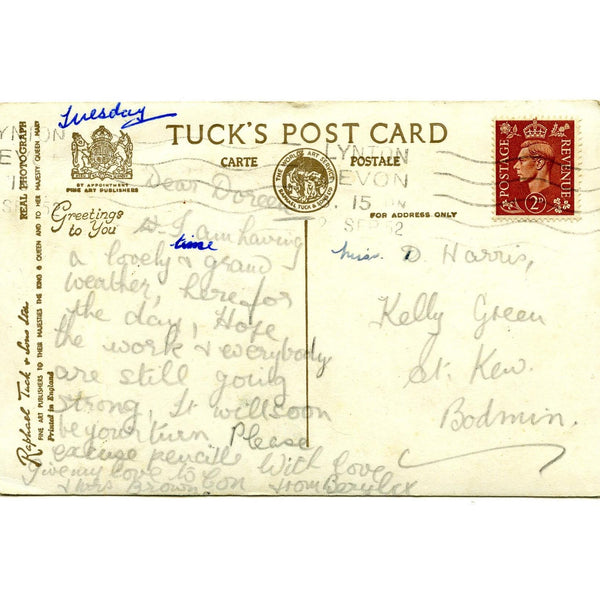 Tuesday
TUCK'S POST CARD
CARTE POSTALE
BY APPOINTMENT
FINE ART PUBLISHERS
Greetings
to You
THE WORLD'S ART SERVICE
RAPHAEL TUCK & SONS LTD
FOR ADDRESS ONLY
LYNTON
DEVON
15
SEP 52
POSTAGE
REVENUE
2D
REAL PHOTOGRAPH
Raphael Tuck & Sons Ltd.
FINE ART PUBLISHERS TO THEIR MAJESTIES THE KING & QUEEN AND TO HER MAJESTY QUEEN MARY
Printed in England
Dear Doreen
I am having
a lovely time & grand
weather, here for
the day, Hope
the work & everybody
are still going
strong, It will soon
be your turn, Please
excuse pencil
Give my love to Con
& Mrs Brown
With love
from Beryl x
Miss. D. Harris,
Kelly Green
St. Kew.
Bodmin.